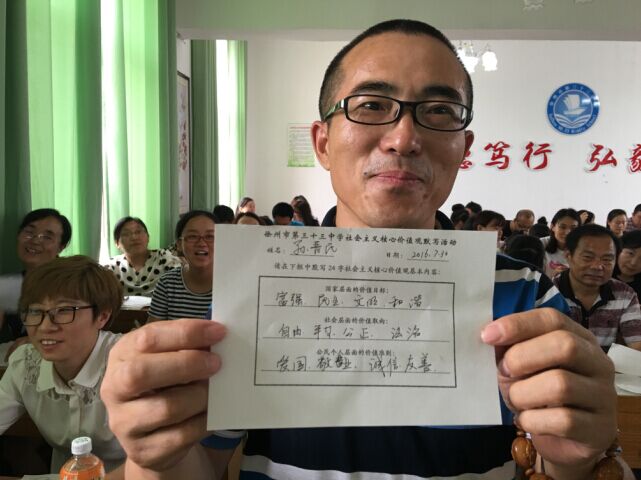 笃行 弘毅
徐州市第三十三中学社会主义核心价值观默写活动
姓名: 孙晋民 日期: 2016.7.30
请在下框中默写24字社会主义核心价值观基本内容:
国家层面的价值目标:
富强 民主 文明 和谐
社会层面的价值取向:
自由 平等 公正 法治
公民个人层面的价值准则:
爱国 敬业 诚信 友善